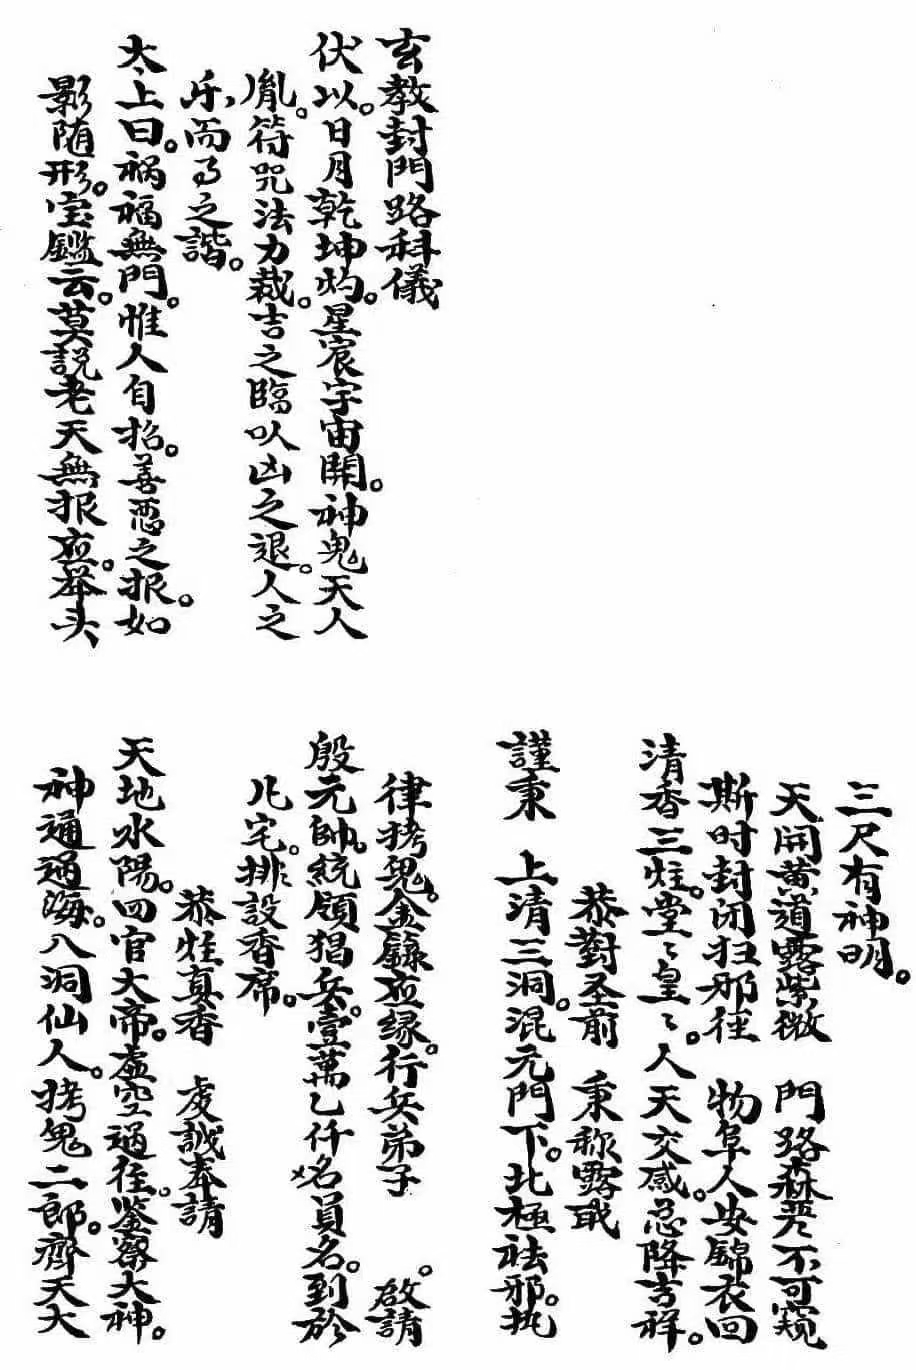 玄教封門路科儀
伏以。日月乾坤灼。星宸宇宙開。神鬼天人
胤。符咒法力裁。吉之臨以凶之退。人之
乐而了之諧。
太上曰。祸福無門。惟人自招。善恶之报。如
影随形。宝鑑云。莫説老天無报应。举头
三尺有神明。
天開黄道露紫微 門路森严不可窥
斯时封闭扫邪往 物阜人安錦衣回
清香三炷。堂〻皇〻。人天交感。忽降吉祥。
恭對圣前 秉称露
謹秉 上清三洞。混元門下。北極祛邪。执
律拷鬼。金籙应缘。行兵弟子 。啟請
殷元帥。統領猖兵。壹萬乙仟名員名。到於
凡宅。排設香席。
恭炷真香 虔誠奉請
天地水陽。四官大帝。虚空過往。鉴察大神。
神通通海。八洞仙人。拷鬼二郎。齊天大